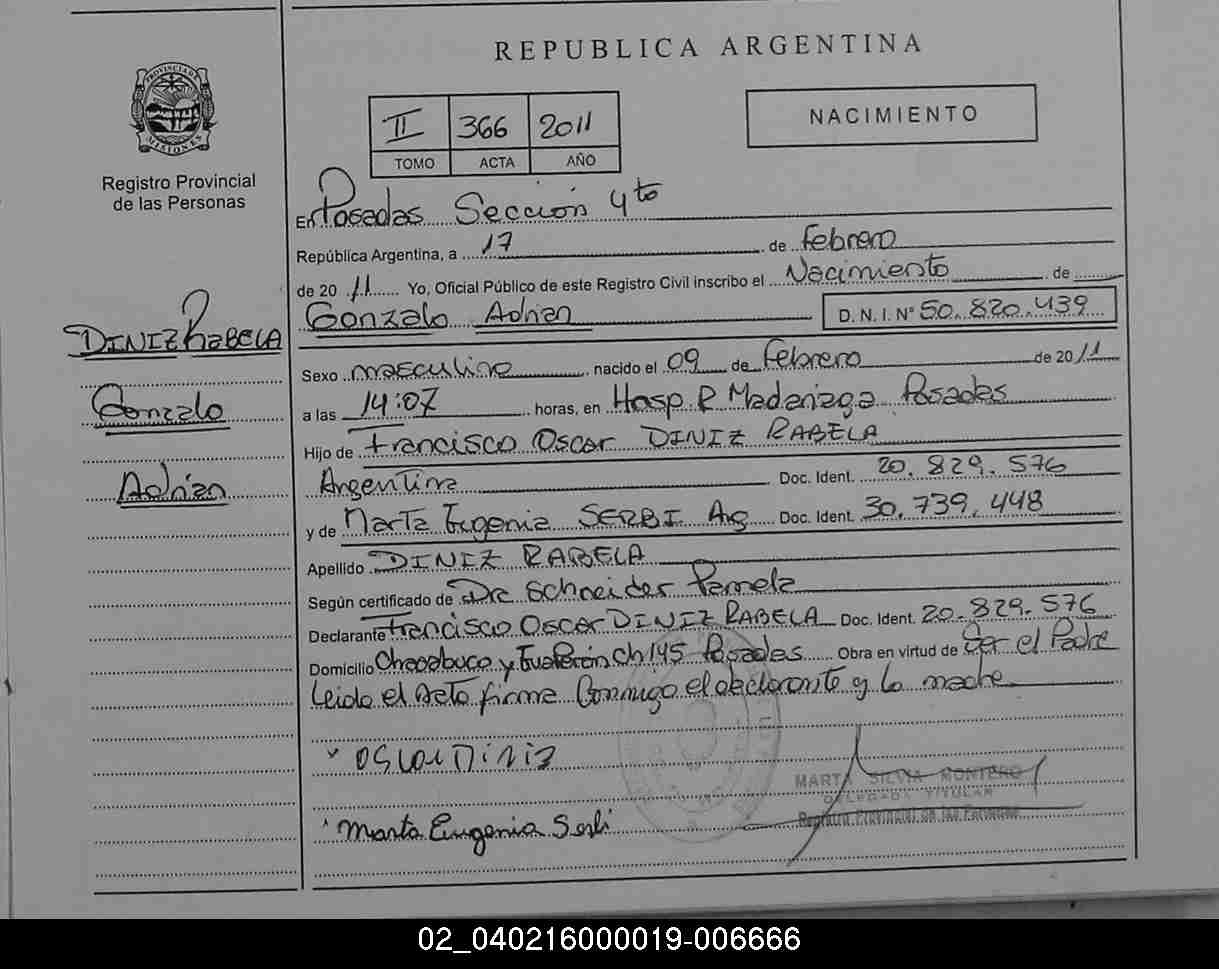 REPUBLICA ARGENTINA
PROVINCIA DE
MISIONES
Registro Provincial
de las Personas
II 366 2011
TOMO ACTA AÑO
NACIMIENTO
En Posadas Sección 4to
República Argentina, a 17 de Febrero
de 20 11 Yo, Oficial Público de este Registro Civil inscribo el Nacimiento de
Gonzalo Adrian D. N. I. N° 50.820.439
DINIZ RABELA
Gonzalo
Adrian
Sexo masculino nacido el 09 de Febrero de 20 11
a las 14:07 horas, en Hosp R Madariaga Posadas
Hijo de Francisco Oscar DINIZ RABELA
Argentina Doc. Ident. 20.829.576
y de Marta Eugenia SERBI Arg Doc. Ident. 30.739.448
Apellido DINIZ RABELA
Según certificado de Dra Schneider Pamela
Declarante Francisco Oscar DINIZ RABELA Doc. Ident. 20.829.576
Domicilio Chacabuco y Eva Perón Ch 145 Posadas Obra en virtud de Ser el Padre
Leida el Acta firma Conmigo el declarante y la madre
Oscar Diniz
Marta Eugenia Serbi
MARTA SILVIA MONTERO
DELEGADA TITULAR
Registro Provincial de las Personas
02_040216000019-006666